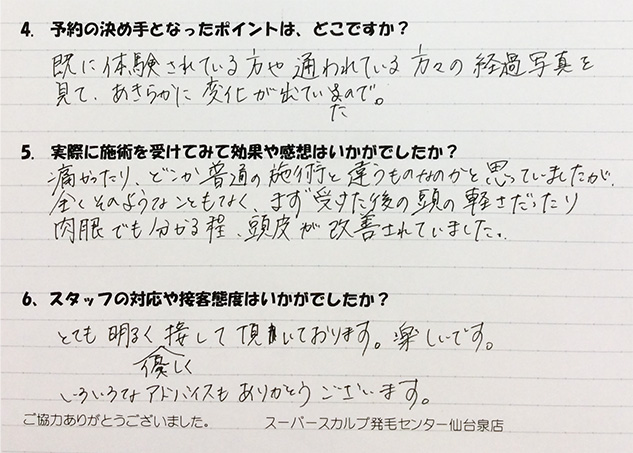 4. 予約の決め手となったポイントは、どこですか？
既に体験されている方や通われている方々の経過写真を
見て、あきらかに変化が出ていたので。
5. 実際に施術を受けてみて効果や感想はいかがでしたか？
痛かったり、どこか普通の施術と違うものなのかと思っていましたが、
全くそのようなこともなく、まず受けた後の頭の軽さだったり
肉眼でも分かる程、頭皮が改善されていました。
6、スタッフの対応や接客態度はいかがでしたか？
とても明るく優しく接して頂いております。楽しいです。
いろいろなアドバイスもありがとうございます。
ご協力ありがとうございました。 スーパースカルプ発毛センター仙台泉店